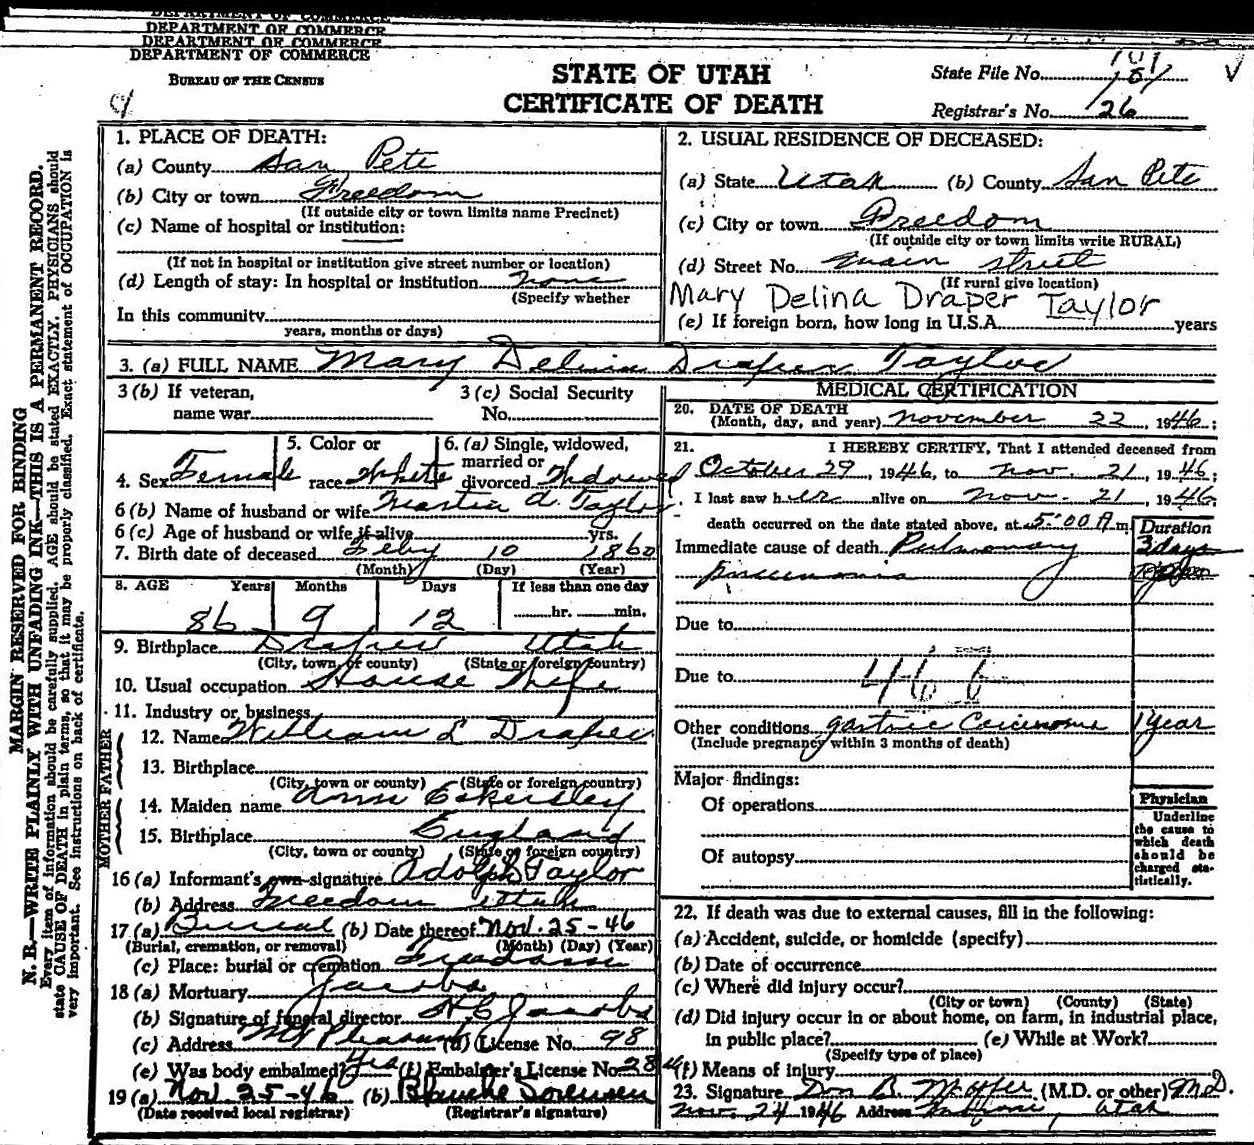 DEPARTMENT OF COMMERCE
DEPARTMENT OF COMMERCE
DEPARTMENT OF COMMERCE
DEPARTMENT OF COMMERCE
BUREAU OF THE CENSUS
STATE OF UTAH
CERTIFICATE OF DEATH
State File No.
Registrar's No. 26
MARGIN RESERVED FOR BINDING
N. B.—WRITE PLAINLY WITH UNFADING INK—THIS IS A PERMANENT RECORD.
Every item of information should be carefully supplied. AGE should be stated EXACTLY. PHYSICIANS should
state CAUSE OF DEATH in plain terms, so that it may be properly classified. Exact statement of OCCUPATION is
very important. See instructions on back of certificate.
1. PLACE OF DEATH:
(a) County San Pete
(b) City or town Freedom
(If outside city or town limits name Precinct)
(c) Name of hospital or institution:
(If not in hospital or institution give street number or location)
(d) Length of stay: In hospital or institution none
(Specify whether
In this community
years, months or days)
2. USUAL RESIDENCE OF DECEASED:
(a) State Utah (b) County San Pete
(c) City or town Freedom
(If outside city or town limits write RURAL)
(d) Street No. main street
(If rural give location)
Mary Delina Draper Taylor
(e) If foreign born, how long in U.S.A. years
3. (a) FULL NAME Mary Delina Draper Taylor
3 (b) If veteran,
name war
3 (c) Social Security
No.
4. Sex Female
5. Color or
race White
6. (a) Single, widowed,
married or
divorced Widowed
6 (b) Name of husband or wife Martin A. Taylor
6 (c) Age of husband or wife if alive yrs.
7. Birth date of deceased Feby 10 1860
(Month) (Day) (Year)
8. AGE Years Months Days If less than one day
86 9 12 hr. min.
9. Birthplace Draper Utah
(City, town or county) (State or foreign country)
10. Usual occupation House Wife
11. Industry or business
FATHER
12. Name William L Draper
13. Birthplace
(City, town or county) (State or foreign country)
MOTHER
14. Maiden name Ann Eckersley
15. Birthplace England
(City, town or county) (State or foreign country)
16 (a) Informant's own signature Adolph Taylor
(b) Address Freedom Utah
17 (a) Burial (b) Date thereof Nov. 25-46
(Burial, cremation, or removal) (Month) (Day) (Year)
(c) Place: burial or cremation Freedom
18 (a) Mortuary Jacobs
(b) Signature of funeral director H C Jacobs
(c) Address Mt Pleasant (d) License No. 98
(e) Was body embalmed? Yes (f) Embalmer's License No. 28
19 (a) Nov. 25-46 (b) Blanche Sorensen
(Date received local registrar) (Registrar's signature)
MEDICAL CERTIFICATION
20. DATE OF DEATH
(Month, day, and year) November 22, 1946;
21. I HEREBY CERTIFY, That I attended deceased from
October 29, 1946, to Nov. 21, 1946;
I last saw her alive on Nov. 21, 1946,
death occurred on the date stated above, at 5:00 A m.
Duration
Immediate cause of death Pulmonary 3 days
pneumonia
Due to
Due to
Other conditions gastric Carcinoma 1 year
(Include pregnancy within 3 months of death)
Major findings:
Of operations
Of autopsy
Physician
Underline
the cause to
which death
should be
charged sta-
tistically.
22. If death was due to external causes, fill in the following:
(a) Accident, suicide, or homicide (specify)
(b) Date of occurrence
(c) Where did injury occur?
(City or town) (County) (State)
(d) Did injury occur in or about home, on farm, in industrial place,
in public place? (e) While at Work?
(Specify type of place)
(f) Means of injury
23. Signature Don B. (M.D. or other) M.D.
Nov. 24 1946 Address Utah